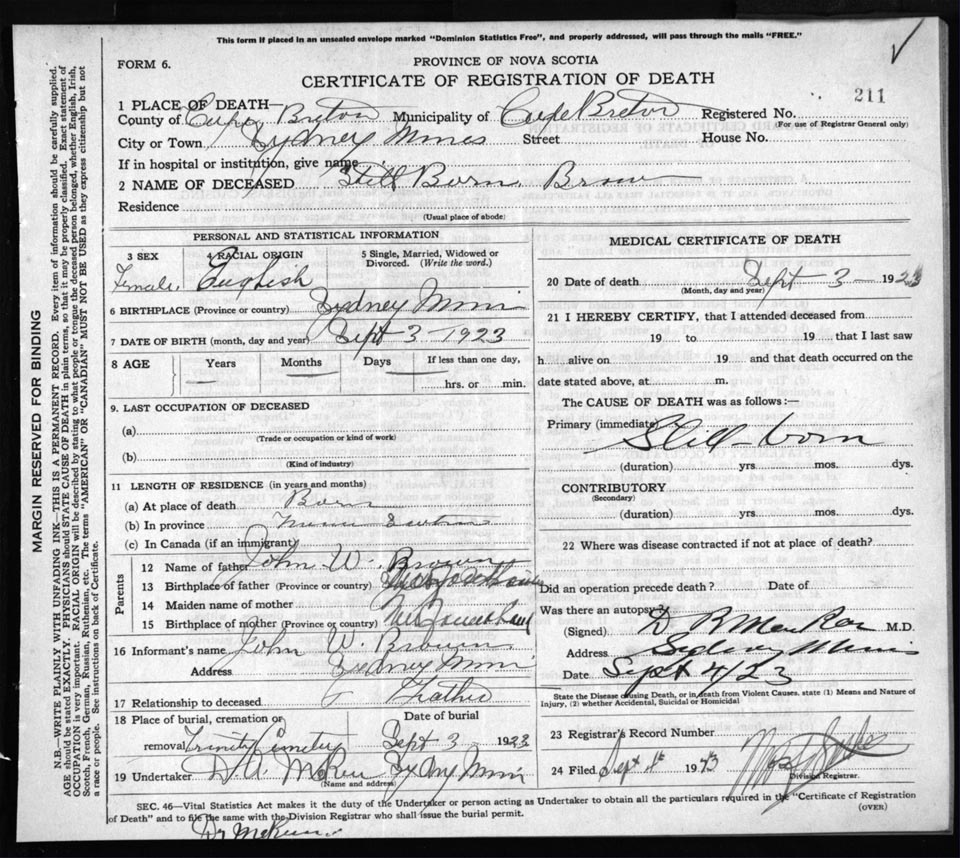 This form if placed in an unsealed envelope marked "Dominion Statistics Free", and properly addressed, will pass through the mails "FREE."
FORM 6.
PROVINCE OF NOVA SCOTIA
CERTIFICATE OF REGISTRATION OF DEATH
211
1 PLACE OF DEATH—
County of Cape Breton Municipality of Cape Breton Registered No.
(For use of Registrar General only)
City or Town Sydney Mines Street House No.
If in hospital or institution, give name
2 NAME OF DECEASED Still Born Brown
Residence
(Usual place of abode)
PERSONAL AND STATISTICAL INFORMATION
3 SEX 4 RACIAL ORIGIN 5 Single, Married, Widowed or Divorced. (Write the word.)
Female. English
6 BIRTHPLACE (Province or country) Sydney Mines
7 DATE OF BIRTH (month, day and year) Sept 3 1923
8 AGE Years Months Days If less than one day,
hrs. or min.
9. LAST OCCUPATION OF DECEASED
(a)
(Trade or occupation or kind of work)
(b)
(Kind of industry)
11 LENGTH OF RESIDENCE (in years and months)
(a) At place of death
(b) In province
(c) In Canada (if an immigrant)
Parents
12 Name of father John W. Brown
13 Birthplace of father (Province or country)
14 Maiden name of mother
15 Birthplace of mother (Province or country)
16 Informant's name John W. Brown
Address Sydney Mines
17 Relationship to deceased Father
18 Place of burial, cremation or removal Trinity Cemetery
Date of burial
Sept 3 1923
19 Undertaker D. A. Sydney Mines
(Name and address)
MEDICAL CERTIFICATE OF DEATH
20 Date of death Sept 3 1923
(Month, day and year)
21 I HEREBY CERTIFY, that I attended deceased from
19 to 19 that I last saw
h alive on 19 and that death occurred on the
date stated above, at m.
The CAUSE OF DEATH was as follows:—
Primary (immediate) Still-born
(duration) yrs. mos. dys.
CONTRIBUTORY
(Secondary)
(duration) yrs. mos. dys.
22 Where was disease contracted if not at place of death?
Did an operation precede death? Date of
Was there an autopsy?
(Signed) M.D.
Address Sydney Mines
Date Sept 4/23
State the Disease causing Death, or in death from Violent Causes, state (1) Means and Nature of
Injury, (2) whether Accidental, Suicidal or Homicidal
23 Registrar's Record Number
24 Filed Sept 1923
Division Registrar.
SEC. 46—Vital Statistics Act makes it the duty of the Undertaker or person acting as Undertaker to obtain all the particulars required in the "Certificate of Registration
of Death" and to file the same with the Division Registrar who shall issue the burial permit.
(OVER)
MARGIN RESERVED FOR BINDING
N.B.—WRITE PLAINLY WITH UNFADING INK—THIS IS A PERMANENT RECORD. Every item of information should be carefully supplied.
AGE should be stated EXACTLY. PHYSICIANS should STATE CAUSE OF DEATH in plain terms, so that it may be properly classified. Exact statement of
OCCUPATION is very important. RACIAL ORIGIN will be described by stating to what people or tongue the deceased person belonged, whether English, Irish,
Scotch, French, German, Russian, Ruthenian, etc. The terms "AMERICAN" OR "CANADIAN" MUST NOT BE USED as they express citizenship but not
a race or people. See instructions on back of Certificate.